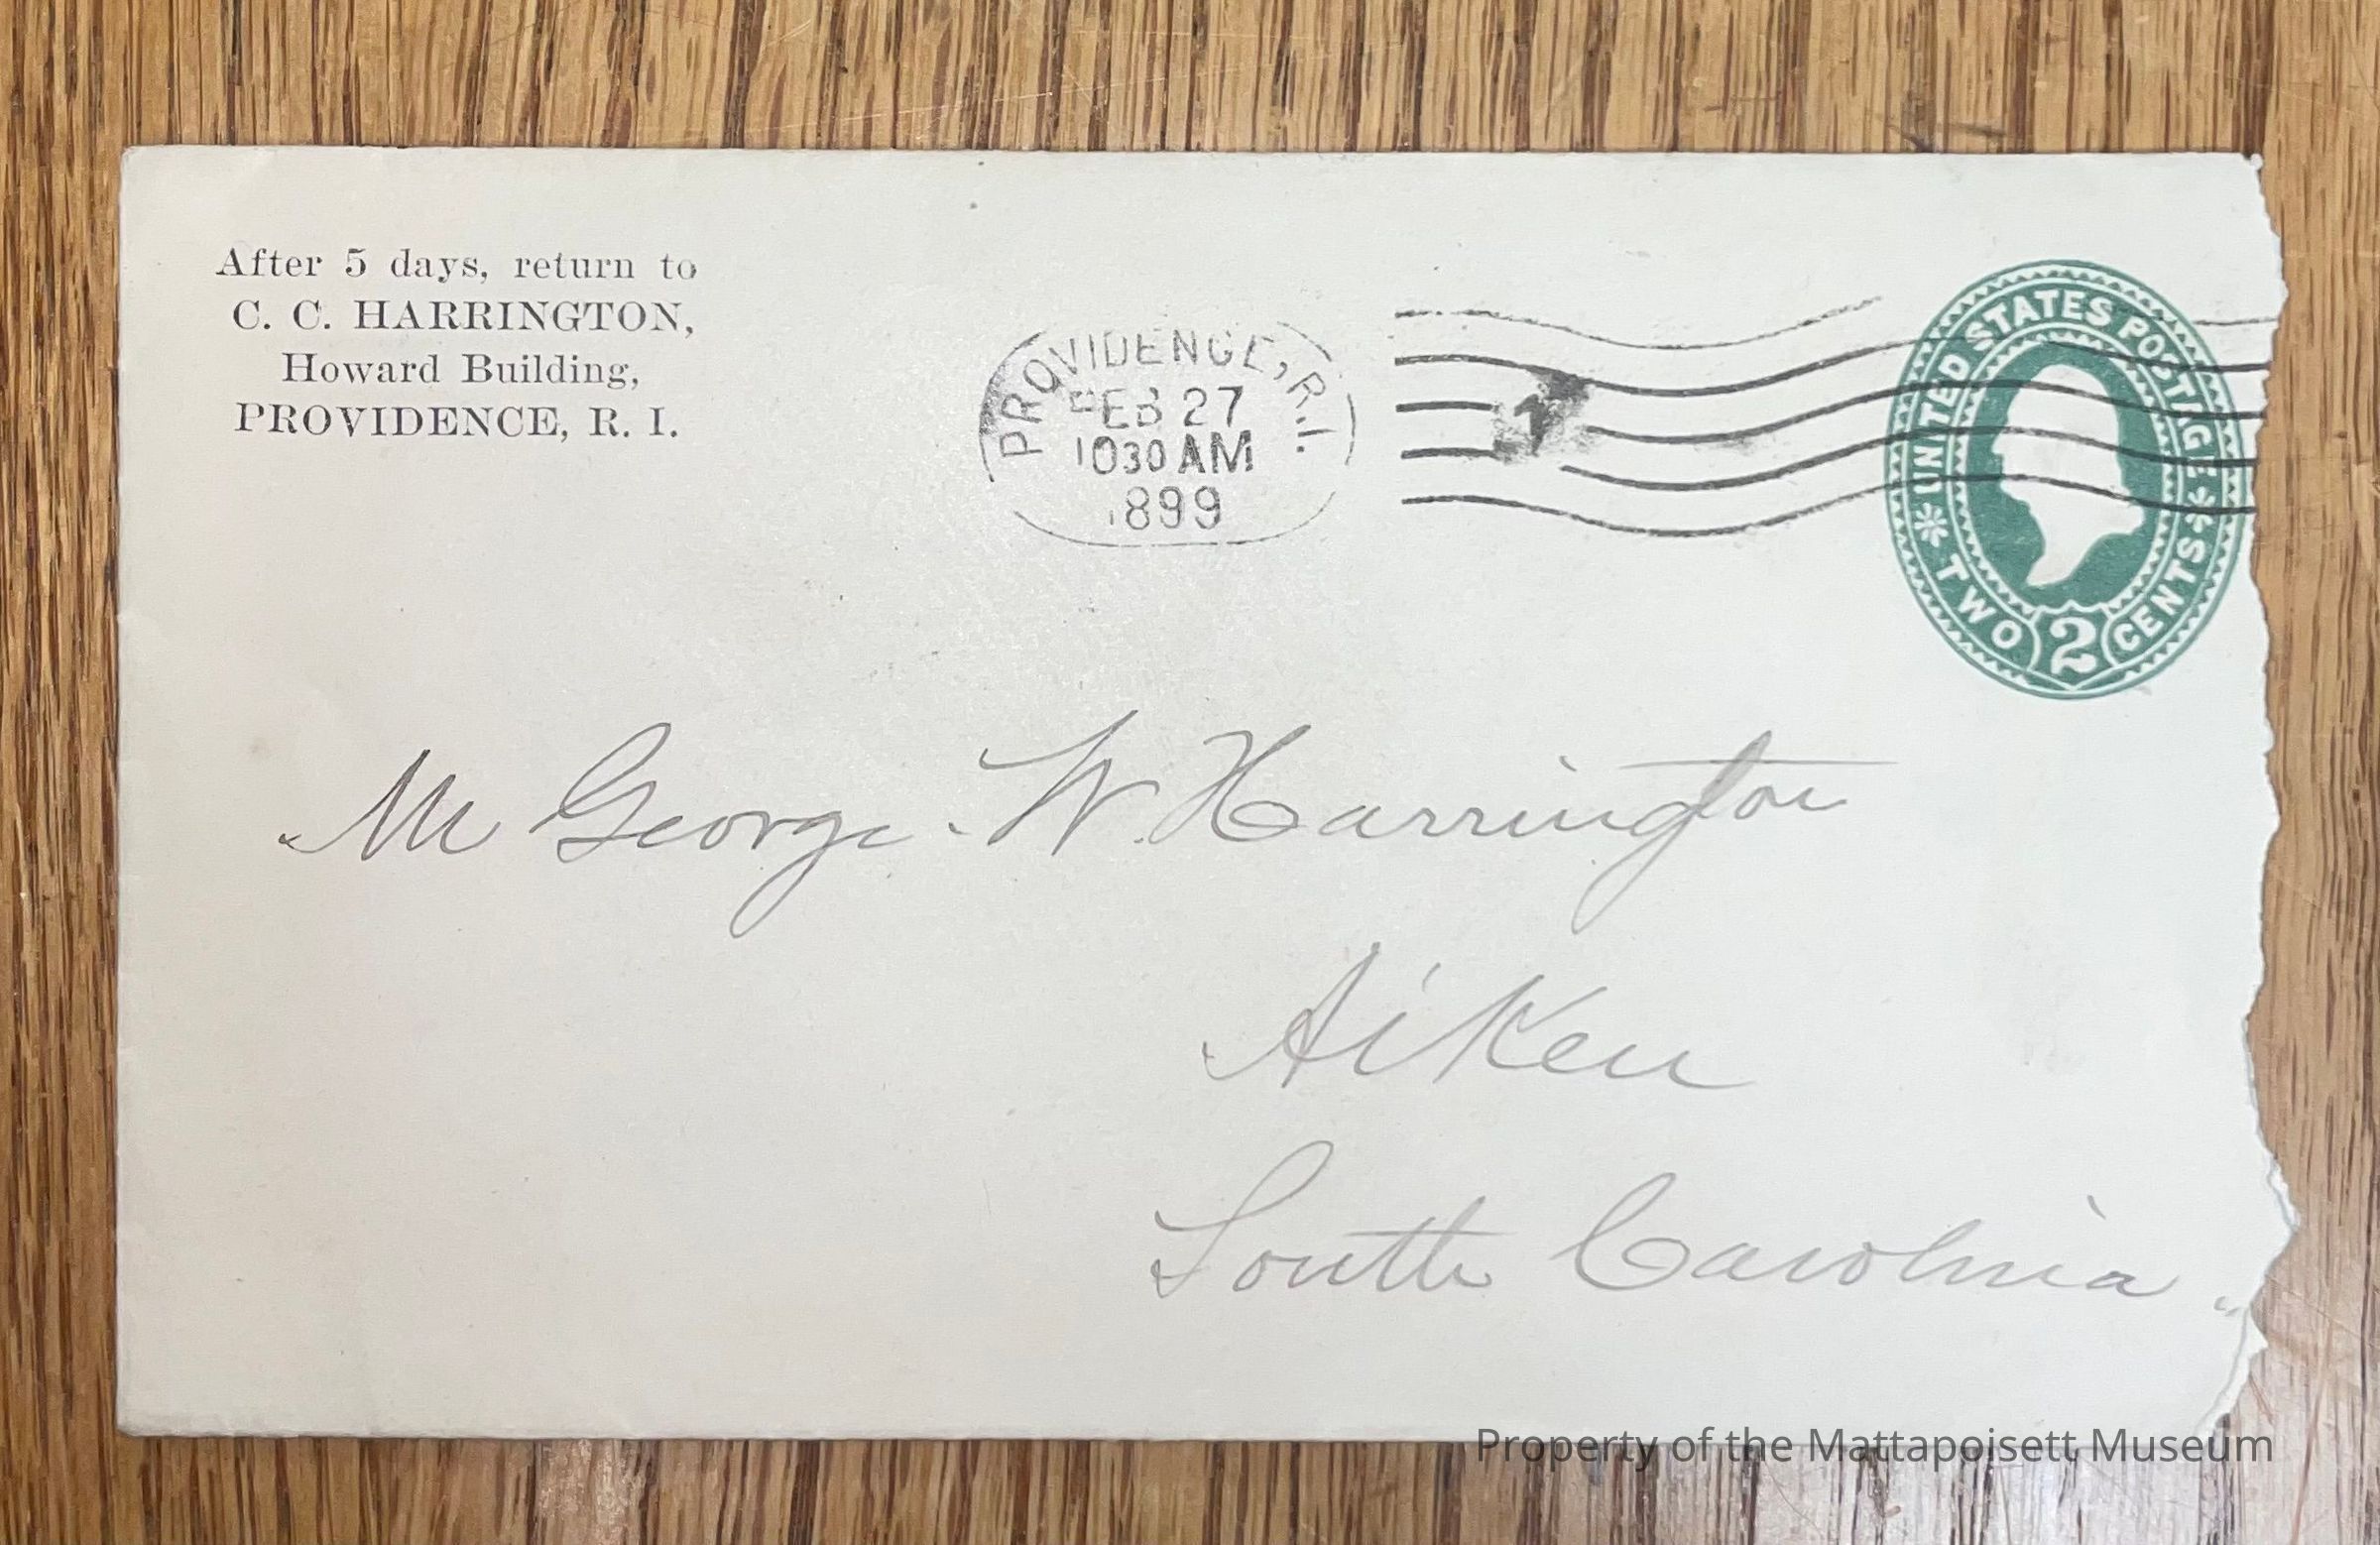 After 5 days, return to
C. C. HARRINGTON,
Howard Building,
PROVIDENCE, R. I.
PROVIDENCE, R.I.
FEB 27
1030 AM
1899
1
UNITED STATES POSTAGE
TWO 2 CENTS
Mr George. W. Harrington
Aiken
South Carolina
Property of the Mattapoisett Museum